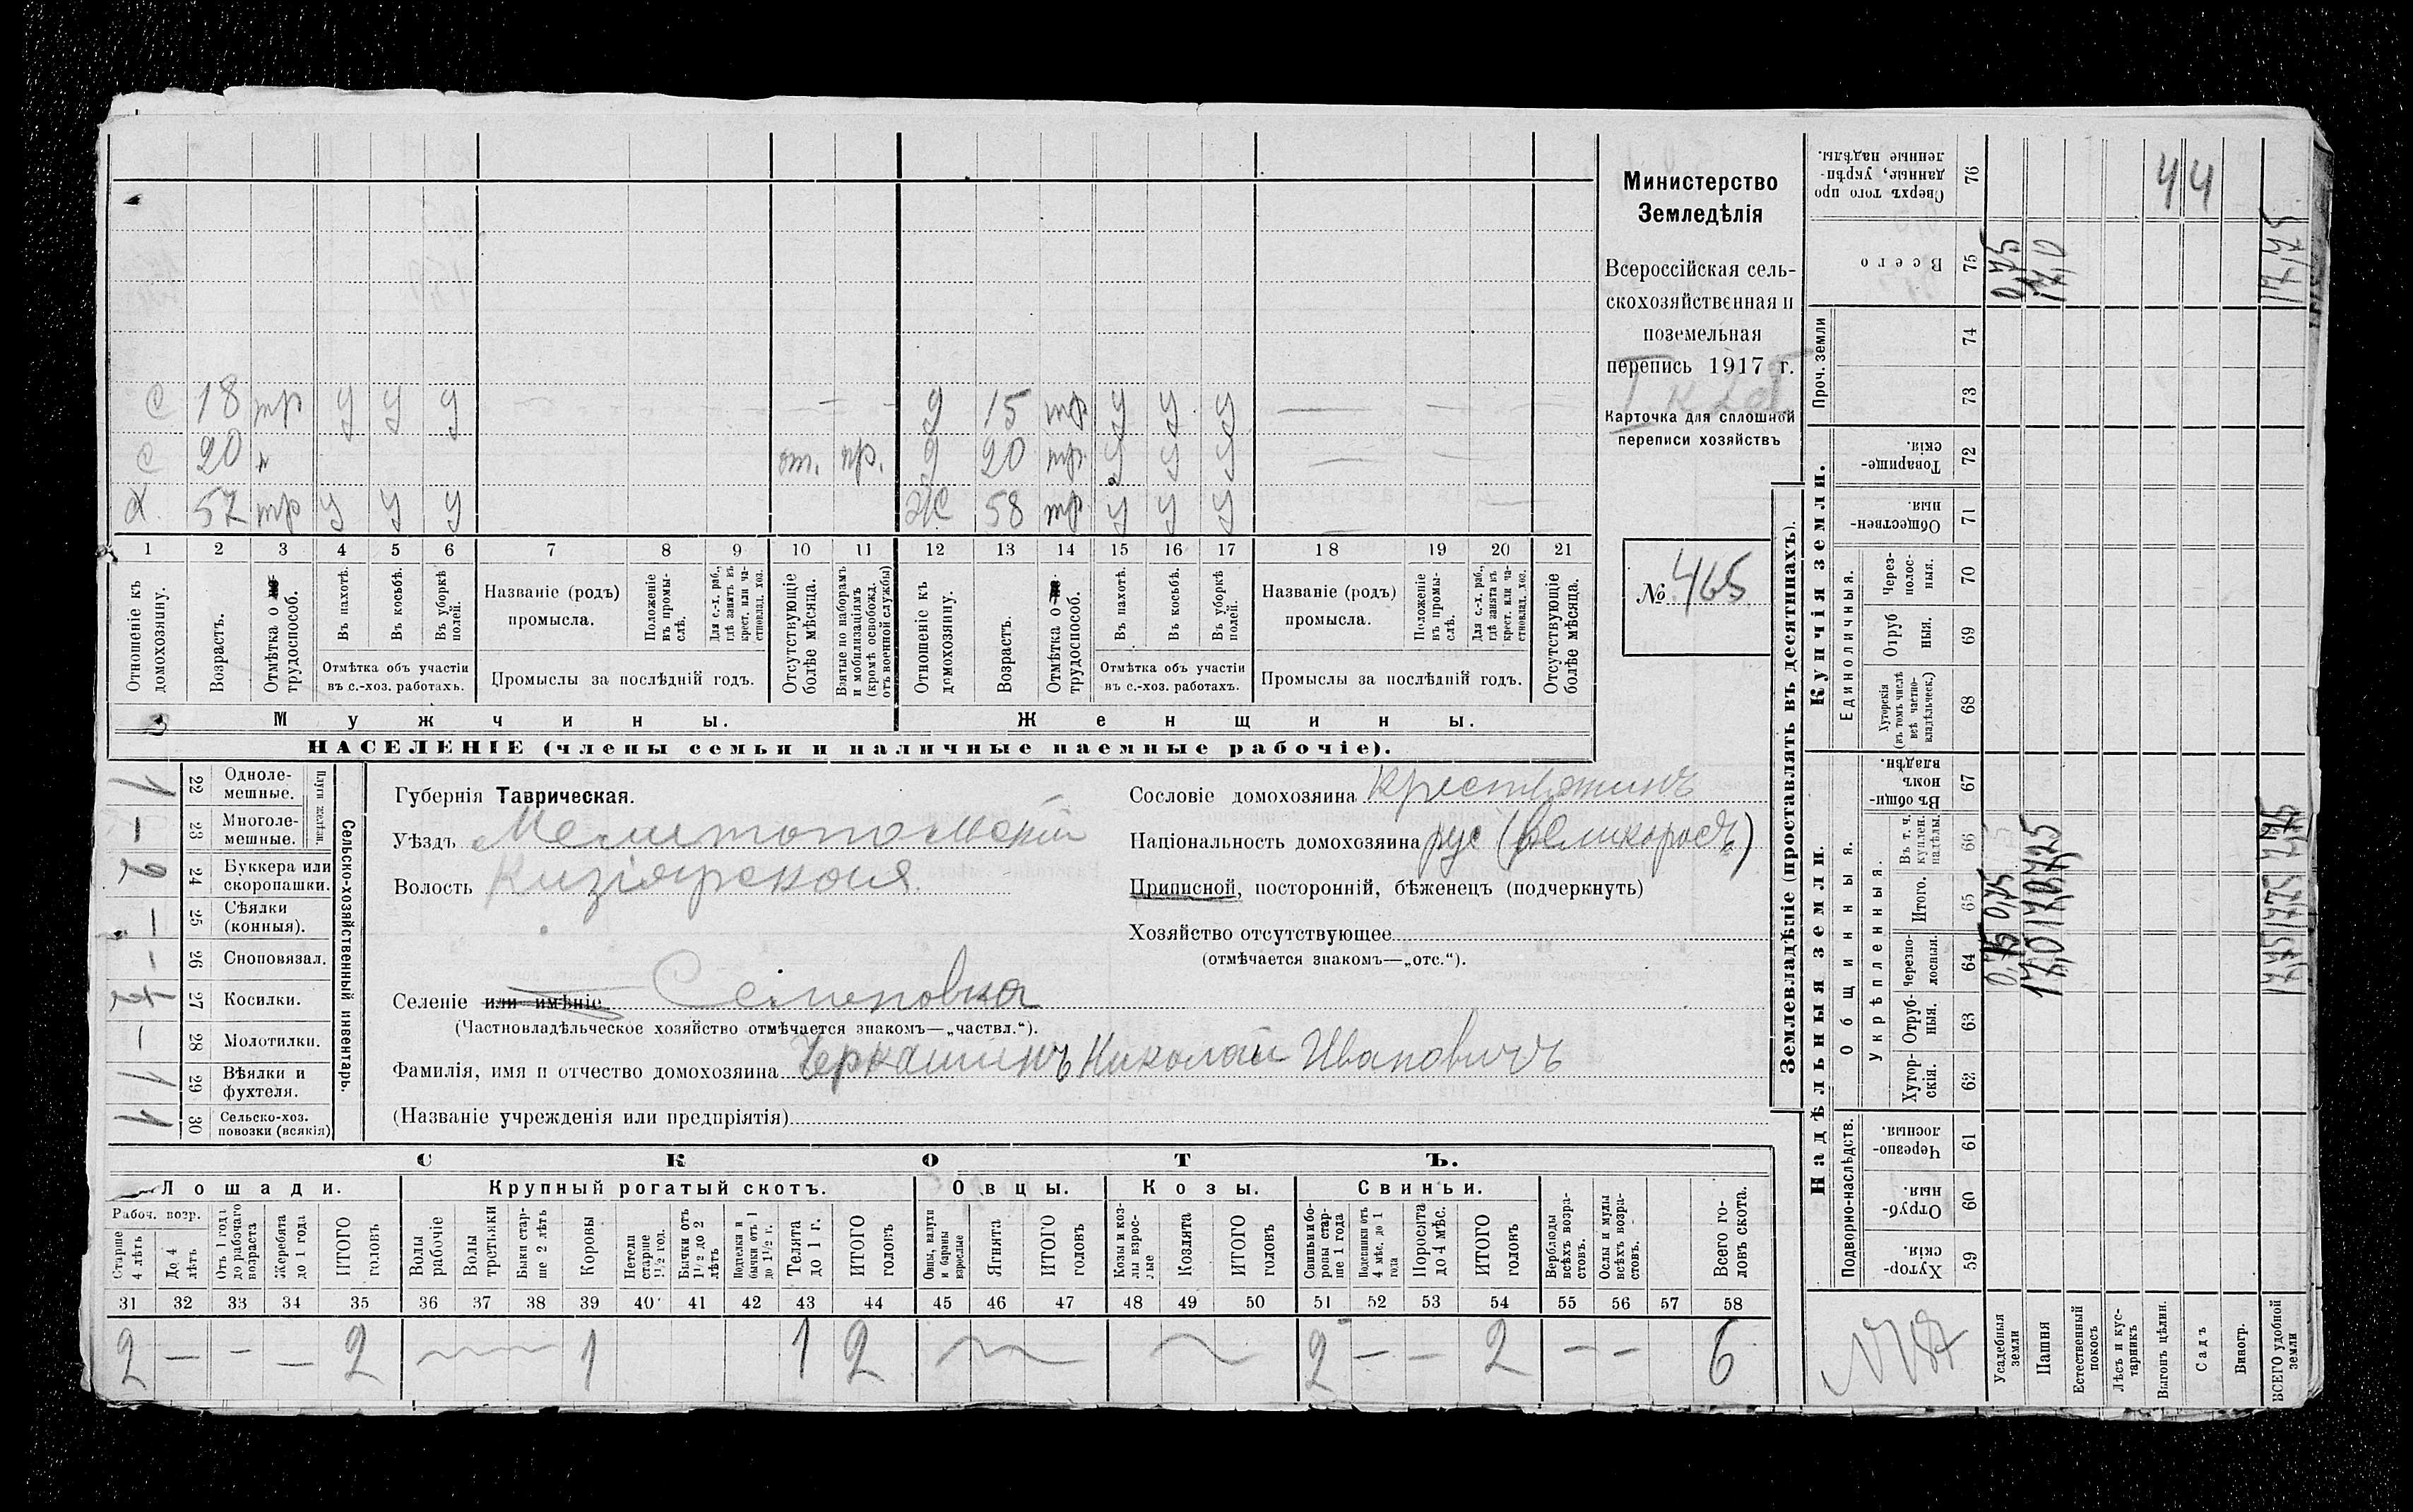 Министерство
Земледѣлія
Всероссійская сель-
скохозяйственная и
поземельная
перепись 1917 г.
Карточка для сплошной
переписи хозяйствъ
№ 465
с 18 тр у у у — — — д 15 тр у у у — —
с 20 от. пр. д 20 тр. у у у — —
х. 57 тр у у у ж 58 тр. у у у — —
1 2 3 4 5 6 7 8 9 10 11 12 13 14 15 16 17 18 19 20 21
Отношеніе къ домохозяину.
Возрастъ.
Отмѣтка о трудоспособ.
Въ пахотѣ.
Въ косьбѣ.
Въ уборкѣ полей.
Отмѣтка объ участіи
въ с.-хоз. работахъ.
Названіе (родъ)
промысла.
Положеніе въ промы-слѣ.
Для с.-х. раб., гдѣ занятъ въ крест. или ча-стновлад. хоз.
Промыслы за послѣдній годъ.
Отсутствующіе болѣе мѣсяца.
Взятые по наборамъ и мобилизаціямъ (кромѣ освобожд. отъ военной службы)
Отношеніе къ домохозяину.
Возрастъ.
Отмѣтка о трудоспособ.
Въ пахотѣ.
Въ косьбѣ.
Въ уборкѣ полей.
Отмѣтка объ участіи
въ с.-хоз. работахъ.
Названіе (родъ)
промысла.
Положеніе въ промы-слѣ.
Для с.-х. раб., гдѣ занята въ крест. или ча-стновлад. хоз.
Промыслы за послѣдній годъ.
Отсутствующіе болѣе мѣсяца.
Мужчины.
Женщины.
НАСЕЛЕНІЕ (члены семьи и наличные наемные рабочіе).
Сельско-хозяйственный инвентарь.
Плуги желѣзн.
1 22 Одноле-мешные.
— 23 Многоле-мешные.
24 Буккера или скоропашки.
— 25 Сѣялки (конныя).
— 26 Сноповязал.
27 Косилки.
— 28 Молотилки.
1 29 Вѣялки и фухтеля.
1 30 Сельско-хоз. повозки (всякія)
Губернія Таврическая.
Уѣздъ Мелитопольскій
Волость Кизіярская
Селеніе или имѣніе Семеновка
(Частновладѣльческое хозяйство отмѣчается знакомъ—„частвл.“).
Фамилія, имя и отчество домохозяина Черкашинъ Николай Ивановичъ
(Названіе учрежденія или предпріятія)
Сословіе домохозяина крестьянинъ
Національность домохозяина рус (великоросъ)
Приписной, посторонній, бѣженецъ (подчеркнуть)
Хозяйство отсутствующее
(отмѣчается знакомъ—„отс.“).
СКОТЪ.
Лошади. Крупный рогатый скотъ. Овцы. Козы. Свиньи.
Рабоч. возр.
Старше 4 лѣтъ
До 4 лѣтъ
Отъ 1 года до рабочаго возраста
Жеребята до 1 года
ИТОГО головъ
Волы рабочіе
Волы третьяки
Быки стар-ше 2 лѣтъ
Коровы
Нетели старше 1½ год.
Бычки отъ 1½ до 2 лѣтъ
Подтелки и бычки отъ 1 до 1½ г.
Телята до 1 г.
ИТОГО головъ
Овцы, валухи и бараны взрослые
Ягнята
ИТОГО головъ
Козы и коз-лы взрос-лые
Козлята
ИТОГО головъ
Свиньи и бо-ровы стар-ше 1 года
Подсвинки отъ 4 мѣс. до 1 года
Поросята до 4 мѣс.
ИТОГО головъ
Верблюды всѣхъ возра-стовъ.
Ослы и мулы всѣхъ возра-стовъ.
Всего го-ловъ скота.
31 32 33 34 35 36 37 38 39 40 41 42 43 44 45 46 47 48 49 50 51 52 53 54 55 56 57 58
2 — — — 2 1 1 2 2 — — 2 — — 6
Землевладѣніе (проставлять въ десятинахъ).
Надѣльныя земли.
Купчія земли.
Проч. земли
Подворно-наслѣдств.
Общинныя.
Укрѣпленныя.
Единоличныя.
Сверхъ того про данные, укрѣп-ленные надѣлы. 76 4 4
Всего 75 0,75 17,0 17,75
74
73
Товарище-скія. 72
Обществен-ныя 71
Через-полос-ныя. 70
Отруб ныя. 69
Хуторскія (въ томъ числѣ всѣ частно-владѣльческ.) 68
Въ общи-номъ владѣн. 67
Въ т. ч. куплен. надѣлы. 66
Итого. 65 0,75 17,0 17,75
Черезпо-лосныя. 64 0,75 17,0 17,75
Отруб-ныя. 63
Хутор-скія. 62
Черезпо-лосныя. 61
Отруб-ныя 60
Хутор-скія. 59
Усадебныя земли
Пашня
Естественный покосъ
Лѣсъ и кус-тарникъ
Выгонъ цѣлин.
Садъ
Виногр.
ВСЕГО удобной земли